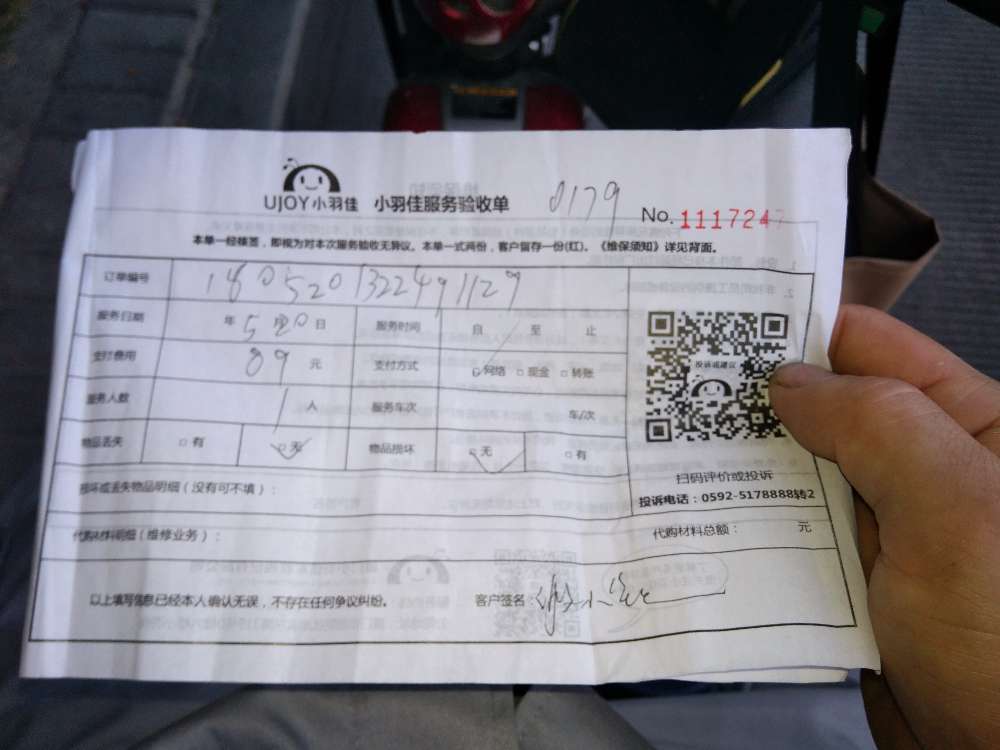 UJOY小羽佳 小羽佳服务验收单 0179 No. 1117247
本单一经核签，即视为对本次服务验收无异议。本单一式两份，客户留存一份(红)。《维保须知》详见背面。
订单编号 1805201322491129
服务日期 年 5 月 20 日 服务时间 自 至 止
支付费用 89 元 支付方式 □网络 □现金 □转账
服务人数 1 人 服务车次 车/次
物品丢失 □有 □无 物品损坏 □无 □有
投诉或建议
扫码评价或投诉
投诉电话：0592-5178888转2
损坏或丢失物品明细（没有可不填）：
代购材料明细（维修业务）： 代购材料总额： 元
以上填写信息已经本人确认无误，不存在任何争议纠纷。 客户签名：